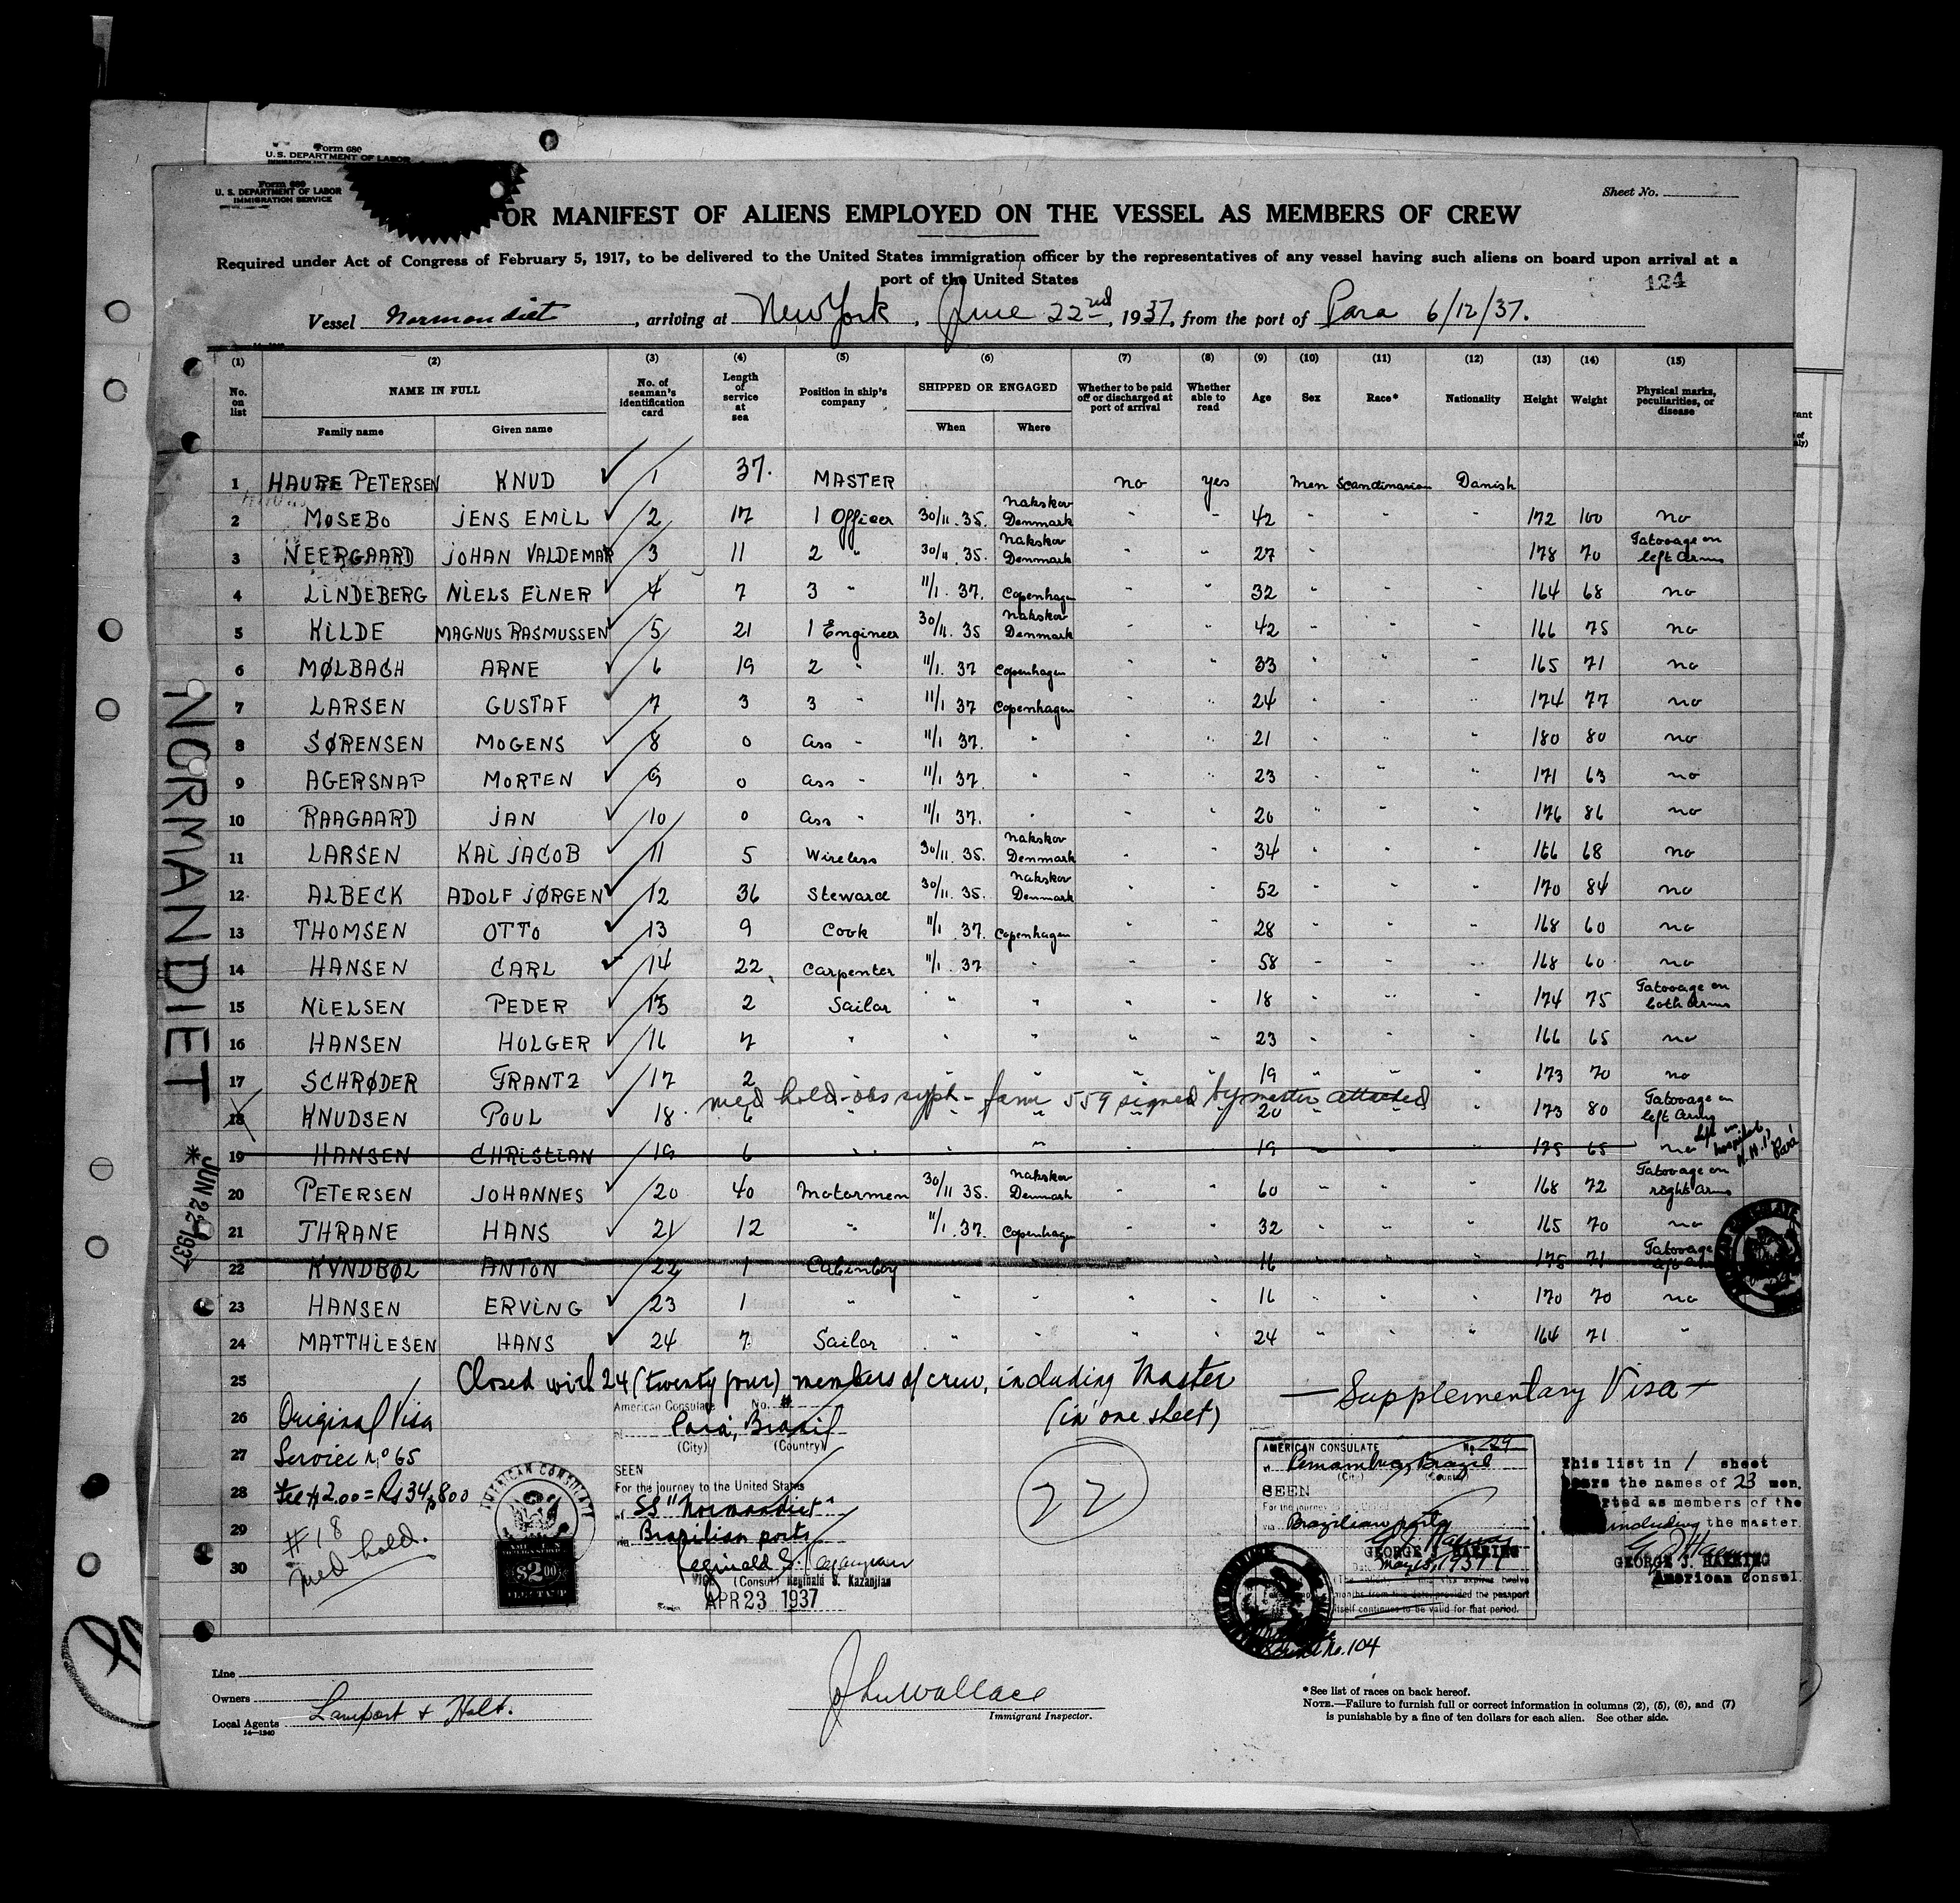 Form 680
U.S. DEPARTMENT OF LABOR
Form 680
U. S. DEPARTMENT OF LABOR
IMMIGRATION SERVICE
Sheet No.
OR MANIFEST OF ALIENS EMPLOYED ON THE VESSEL AS MEMBERS OF CREW
Required under Act of Congress of February 5, 1917, to be delivered to the United States immigration officer by the representatives of any vessel having such aliens on board upon arrival at a
port of the United States
124
Vessel Normandiet, arriving at New York, June 22nd, 1937, from the port of Para 6/12/37.
(1) (2) (3) (4) (5) (6) (7) (8) (9) (10) (11) (12) (13) (14) (15)
No. on list NAME IN FULL Family name Given name No. of seaman's identification card Length of service at sea Position in ship's company SHIPPED OR ENGAGED When Where Whether to be paid off or discharged at port of arrival Whether able to read Age Sex Race* Nationality Height Weight Physical marks, peculiarities, or disease
1 PETERSEN KNUD 1 37. MASTER no yes men Scandinavian Danish
2 MOSEBO JENS EMIL 2 17 1 Officer 30/11. 35. Nakskov Denmark " " 42 " " " 172 100 no
3 NEERGAARD JOHAN VALDEMAR 3 11 2 " 30/11. 35. Nakskov Denmark " " 27 " " 178 70 Tatovage on left Arms
4 LINDEBERG NIELS EINER 4 7 3 " 11/1. 37. Copenhagen " " 32 " " " 164 68 no
5 KILDE MAGNUS RASMUSSEN 5 21 1 Engineer 30/11. 35 Nakskov Denmark " " 42 " " " 166 75 no
6 MØLBACH ARNE 6 19 2 " 11/1. 37 Copenhagen " " 33 " " " 165 71 no
7 LARSEN GUSTAF 7 3 3 " 11/1 37 Copenhagen " " 24 " " " 174 77 no
8 SØRENSEN MOGENS 8 0 Ass " 11/1 37. " " " 21 " " " 180 80 no
9 AGERSNAP MORTEN 9 0 Ass " 11/1 37. " " " 23 " " " 171 63 no
10 RAAGAARD JAN 10 0 Ass " 11/1 37. " " " 20 " " " 176 86 no
11 LARSEN KAI JACOB 11 5 Wireless 30/11. 35. Nakskov Denmark " " 34 " " " 166 68 no
12 ALBECK ADOLF JØRGEN 12 36 Steward 30/11. 35. Nakskov Denmark " " 52 " " " 170 84 no
13 THOMSEN OTTO 13 9 Cook 11/1 37. Copenhagen " " 28 " " " 168 60 no
14 HANSEN CARL 14 22 Carpenter 11/1. 37 " " " 58 " " " 168 60 no
15 NIELSEN PEDER 15 2 Sailor " " " " 18 " " " 174 75 Tatovage on both Arms
16 HANSEN HOLGER 16 7 " " " " " 23 " " " 166 65 no
17 SCHRØDER FRANTZ 17 2 " " " " " 19 " " " 173 70 no
med hold - obs syph - form 559 signed by master attached
18 KNUDSEN POUL 18 6 " " " " " 20 " " " 173 80 Tatovage on left Arms
19 HANSEN CHRISTIAN 19 6 " " " " " 19 " " " 175 65 no Left in hospital Para
20 PETERSEN JOHANNES 20 40 Motormen 30/11 35. Nakskov Denmark " " 60 " " " 168 72 Tatovage on right Arms
21 THRANE HANS 21 12 " 11/1. 37. Copenhagen " " 32 " " " 165 70 no
22 KYNDBØL ANTON 22 1 Cabinboy " " " " 16 " " " 175 71 Tatovage left
23 HANSEN ERVING 23 1 " " " " " 16 " " " 170 70 no
24 MATTHIESEN HANS 24 7 Sailor " " " " 24 " " " 164 71 "
25 Closed with 24 (twenty four) members of crew, including Master
(in one sheet)
— Supplementary Visa —
26 Original Visa
27 Service no 65
28 Fee $2.00 = Rs 34$800
29 #18
30 med hold.
American Consulate No.
at Para, Brazil
(City) (Country)
SEEN
For the journey to the United States
SS "Normandiet"
via Brazilian ports
Reginald S. Kazanjian
VICE (Consul) Reginald S. Kazanjian
APR 23 1937
AMERICAN CONSULATE
$2.00
22
AMERICAN CONSULATE No. 29
Pernambuco, Brazil
(City) (Country)
SEEN
For the journey
via Brazilian ports
GEORGE J. HAERING
May 15, 1937
months from this date provided the passport
itself continues to be valid for that period.
No. 104
This list in 1 sheet
bears the names of 23 men.
as members of the
including the master.
GEORGE J. HAERING
American Consul.
NORMANDIET
* JUN 22 1937
Line
Owners
Local Agents Lamport & Holt.
14—1940
John Wallace
Immigrant Inspector.
* See list of races on back hereof.
NOTE.—Failure to furnish full or correct information in columns (2), (5), (6), and (7)
is punishable by a fine of ten dollars for each alien. See other side.